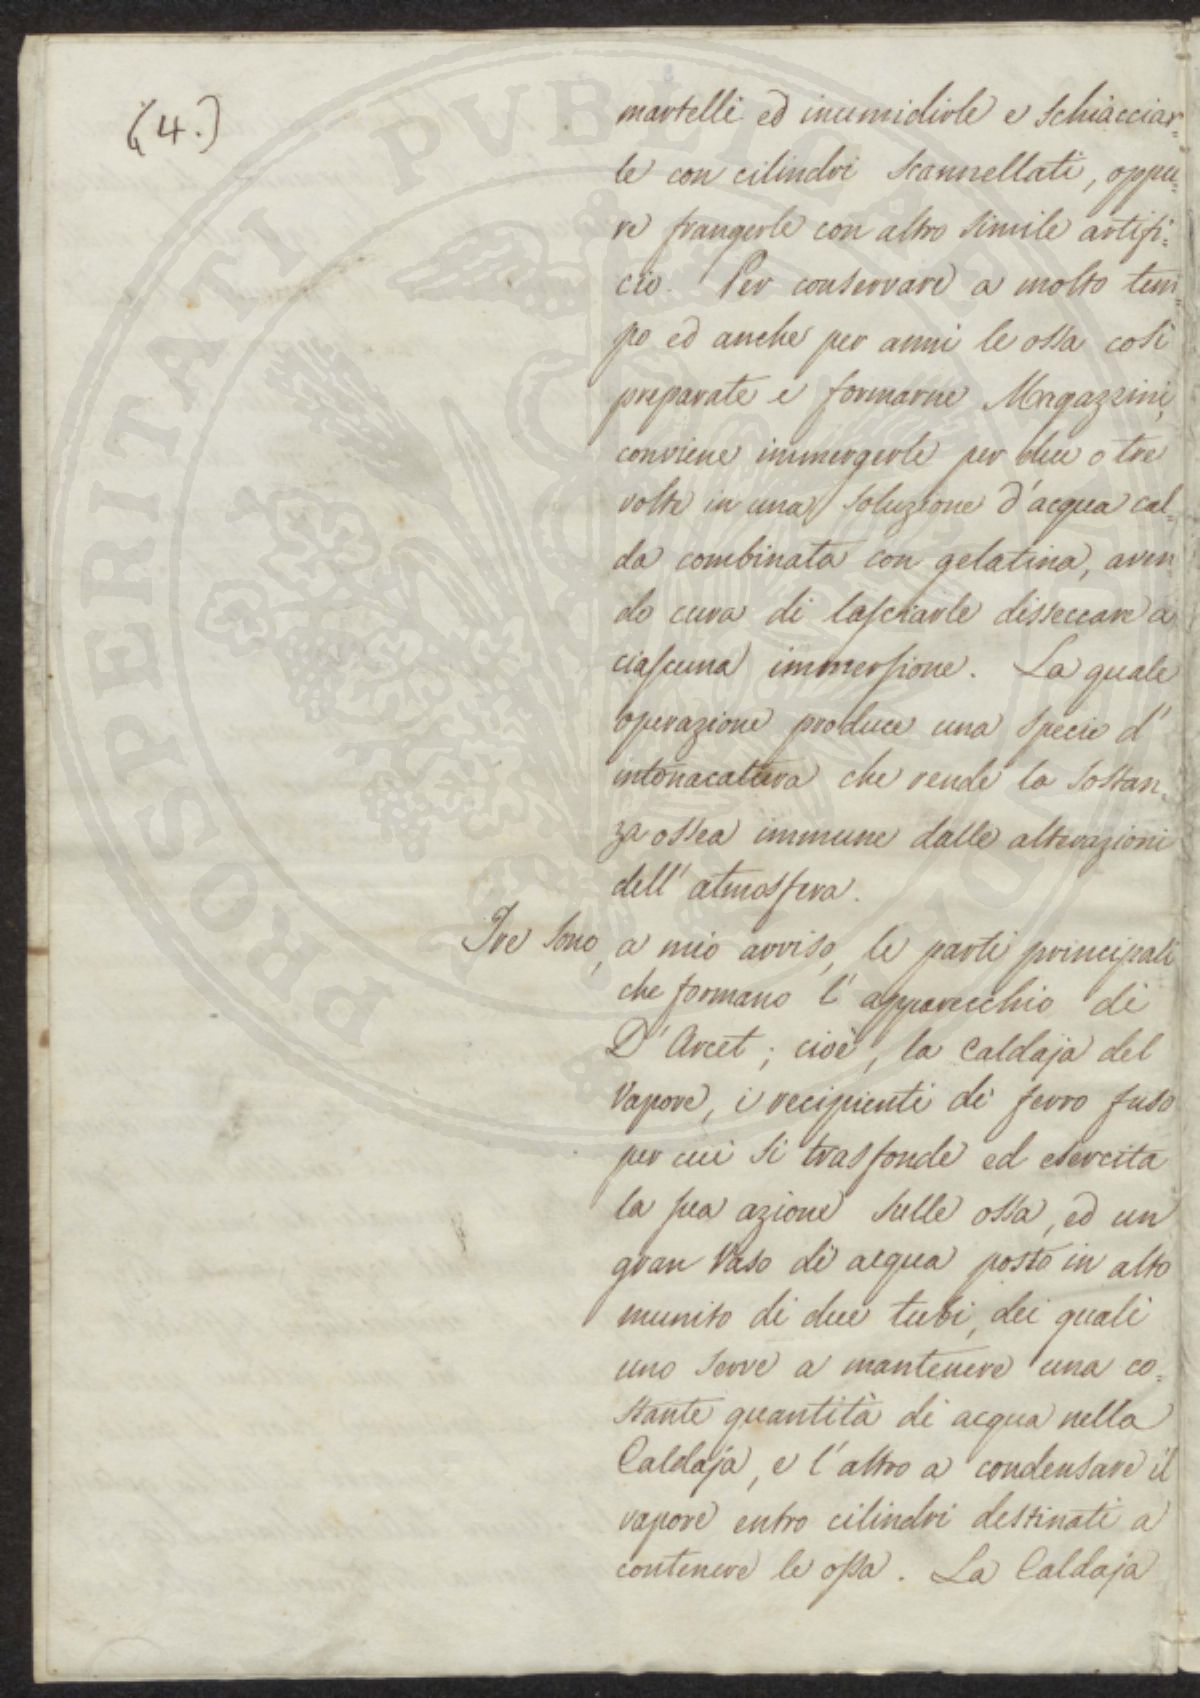 (4.)
martelli ed inumidirle e schiacciar=
le con cilindri scannellati, oppu=
re frangerle con altro simile artifi=
cio. Per conservare a molto tem=
po ed anche per anni le ossa così
preparate e formarne Magazzini,
conviene immergerle per due o tre
volte in una soluzione d'acqua cal=
da combinata con gelatina, aven=
do cura di lasciarle disseccare a
ciascuna immersione. La quale
operazione produce una specie d'
intonacatura che rende la sostan=
za ossea immune dalle alterazioni
dell'atmosfera.
Tre sono, a mio avviso, le parti principali
che formano l'apparecchio di
D'Arcet; cioè, la Caldaja del
Vapore, i recipienti di ferro fuso
per cui si trasfonde ed esercita
la sua azione sulle ossa, ed un
gran Vaso di acqua posto in alto
munito di due tubi, dei quali
uno serve a mantenere una co=
stante quantità di acqua nella
Caldaja, e l'altro a condensare il
vapore entro cilindri destinati a
contenere le ossa. La Caldaja
PROSPERITATI PVBLICAE